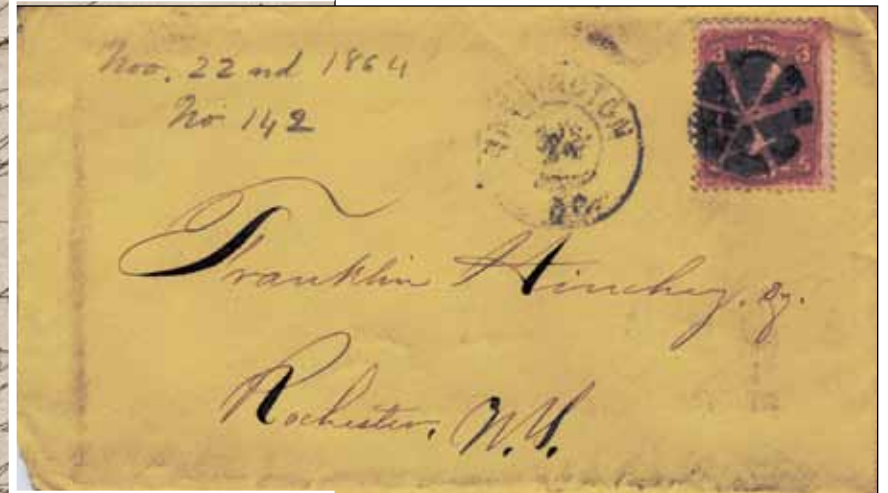 Nov. 22nd 1864
No 142
WASHINGTON
3 3
Franklin Hinchey. Esq.
Rochester, N.Y.